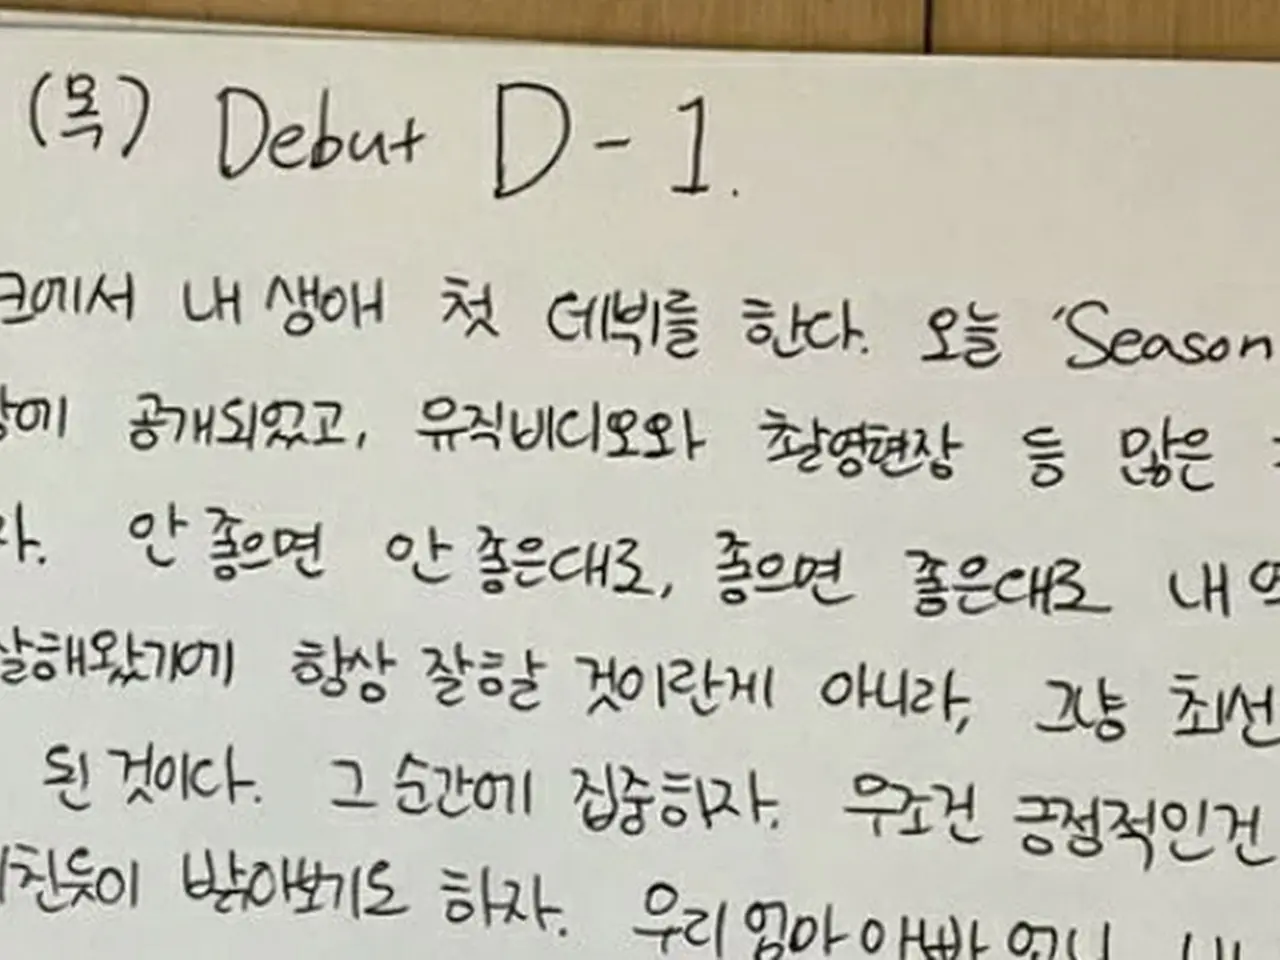 (목) Debut D-1.
크에서 내 생애 첫 데뷔를 한다. 오늘 'Season
에 공개되었고, 뮤직비디오와 촬영현장 등 많은
안 좋으면 안 좋은대로, 좋으면 좋은대로 내
잘해왔기에 항상 잘할 것이란게 아니라, 그냥 최선
된 것이다. 그 순간에 집중하자. 무조건 긍정적인건
친듯이 받아보기도 하자. 우리 엄마 아빠 언니